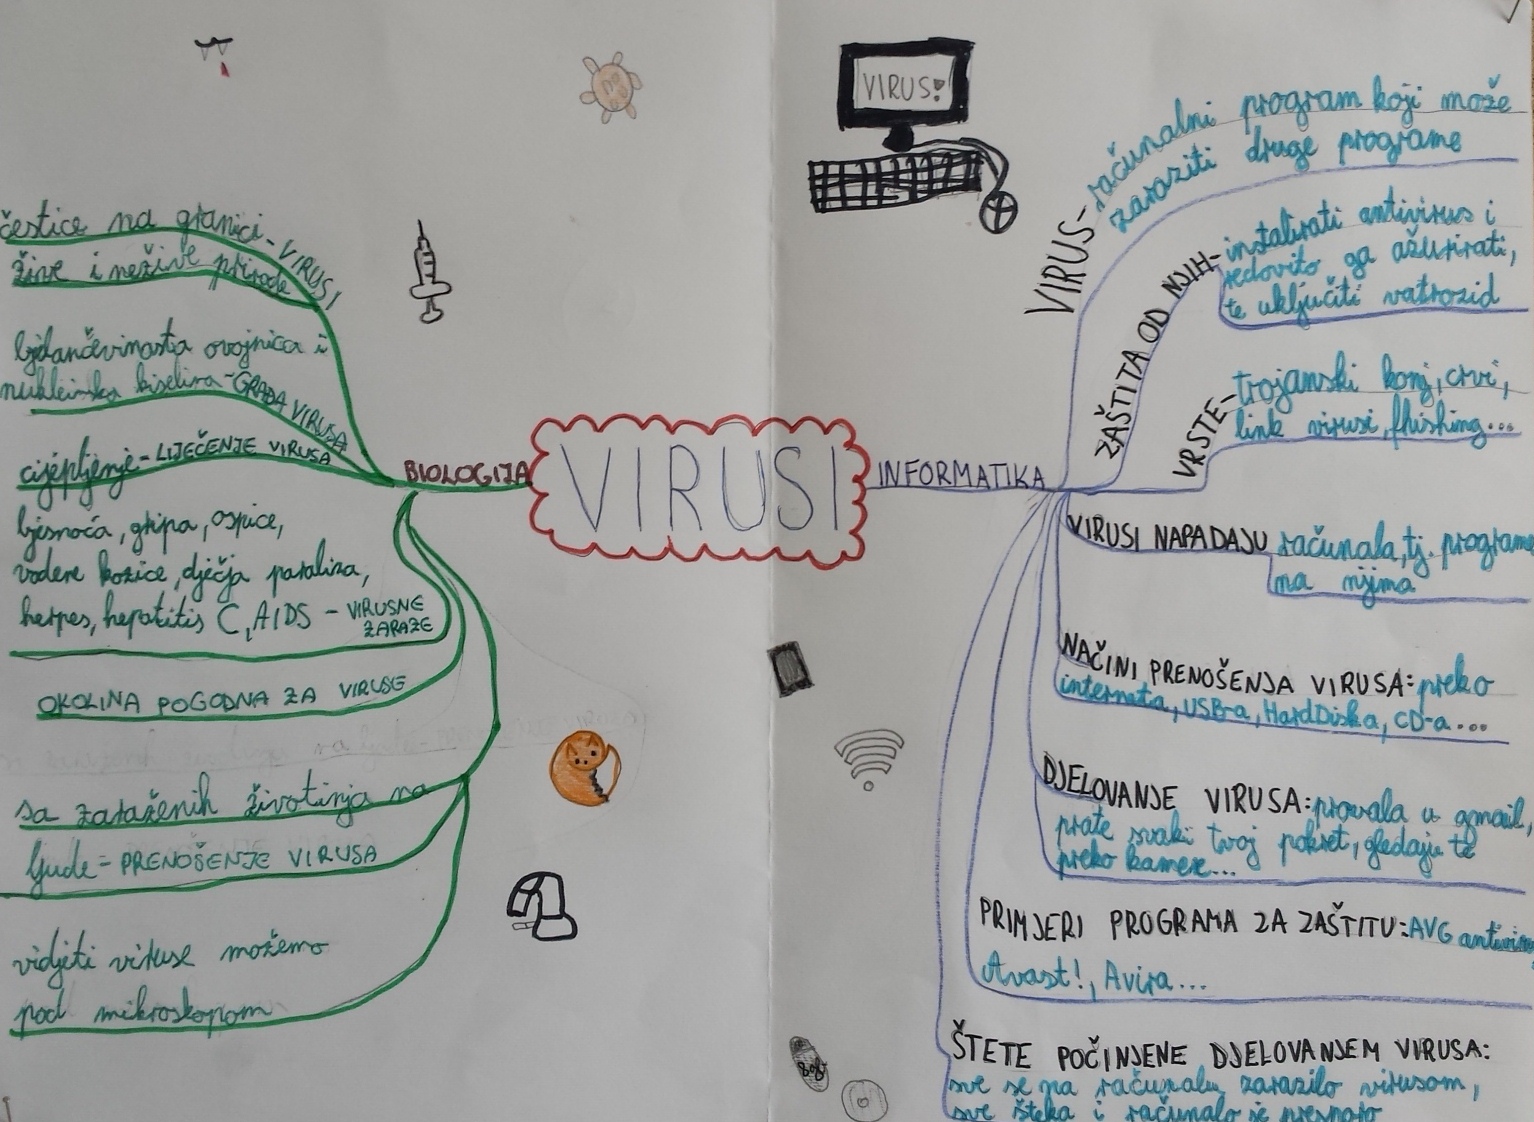 VIRUSI
BIOLOGIJA
čestice na granici - VIRUSI
žive i nežive prirode
bjelančevinasta ovojnica i
nukleinska kiselina - GRAĐA VIRUSA
cijepljenje - LIJEČENJE VIRUSA
bjesnoća, gripa, ospice,
vodene kozice, dječja paraliza,
herpes, hepatitis C, AIDS - VIRUSNE
ZARAZE
OKOLINA POGODNA ZA VIRUSE
sa zaraženih životinja na
ljude - PRENOŠENJE VIRUSA
vidjeti viruse možemo
pod mikroskopom
VIRUS!
INFORMATIKA
VIRUS - računalni program koji može
zaraziti druge programe
ZAŠTITA OD NJIH - instalirati antivirus i
redovito ga ažurirati,
te uključiti vatrozid
VRSTE - trojanski konj, crvi,
link virusi, phishing...
VIRUSI NAPADAJU računala, tj. programe
na njima
NAČINI PRENOŠENJA VIRUSA: preko
interneta, USB-a, HardDiska, CD-a...
DJELOVANJE VIRUSA: provala u gmail,
prate svaki tvoj pokret, gledaju te
preko kamere...
PRIMJERI PROGRAMA ZA ZAŠTITU: AVG antivirus
Avast!, Avira...
ŠTETE POČINJENE DJELOVANJEM VIRUSA:
sve se na računalu zarazilo virusom,
sve šteka i računalo je